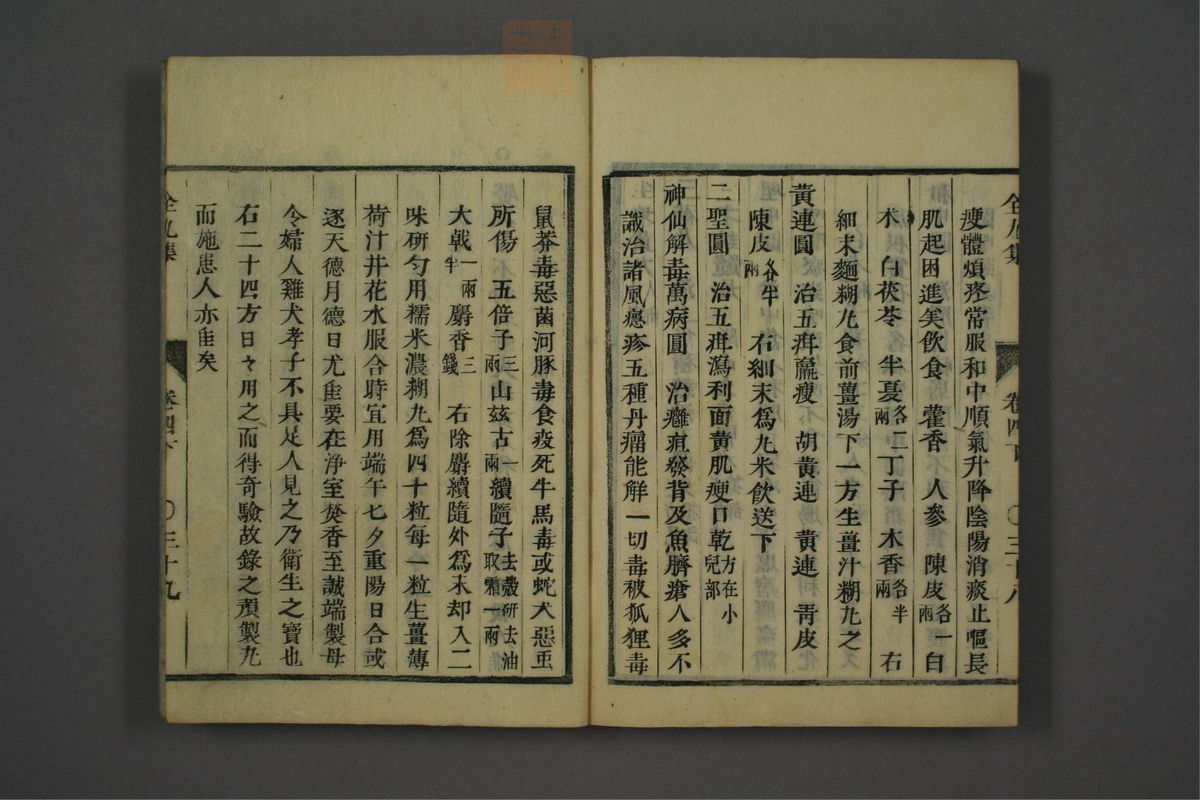 全九集 卷四下 〇三十八
瘦體煩疼常服和中順氣升降陰陽消痰止嘔長
肌起困進美飲食 藿香 人參 陳皮各一兩 白
朮 白茯苓 半夏各二兩 丁子 木香各半兩 右
細末麵糊丸食前薑湯下一方生薑汁糊丸之
黃連圓 治五疳羸瘦 胡黃連 黃連 靑皮
陳皮各半兩 右細末爲丸米飲送下
二聖圓 治五疳瀉利面黃肌瘦口乾方在小兒部
神仙解毒萬病圓 治癰疽發背及魚臍瘡人多不
識治諸風癮疹五種丹瘤能解一切毒被狐狸毒
鼠莽毒惡菌河豚毒食疫死牛馬毒或蛇犬惡虫
所傷 五倍子三兩 山茲古一兩 續隨子去殼研去油取霜一兩
大戟一兩半 麝香三錢 右除麝續隨外爲末却入二
味研勻用糯米濃糊丸爲四十粒每一粒生薑薄
荷汁井花水服合時宜用端午七夕重陽日合或
逐天德月德日尤佳要在淨室焚香至誠端製毋
令婦人雞犬孝子不具足人見之乃衛生之寶也
右二十四方日々用之而得奇驗故錄之預製丸
而施患人亦佳矣
全九集 卷四下 〇三十九